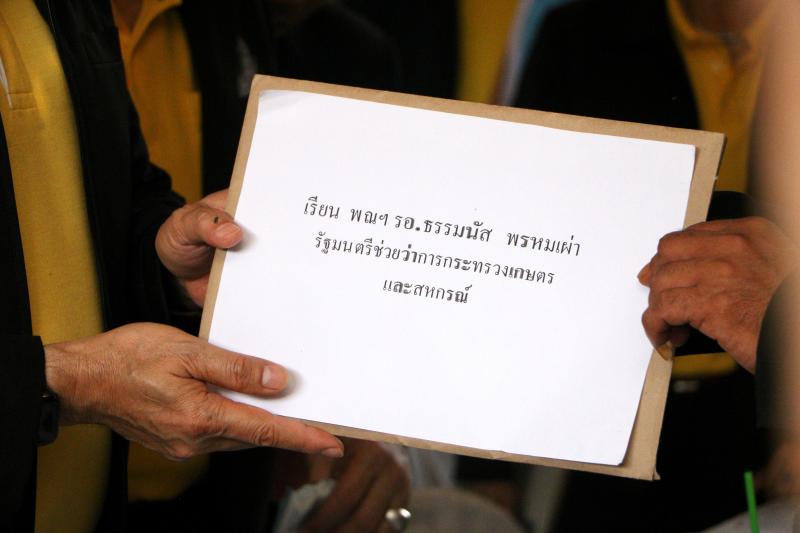 เรียน พณฯ รอ.ธรรมนัส พรหมเผ่า
รัฐมนตรีช่วยว่าการกระทรวงเกษตร
และสหกรณ์